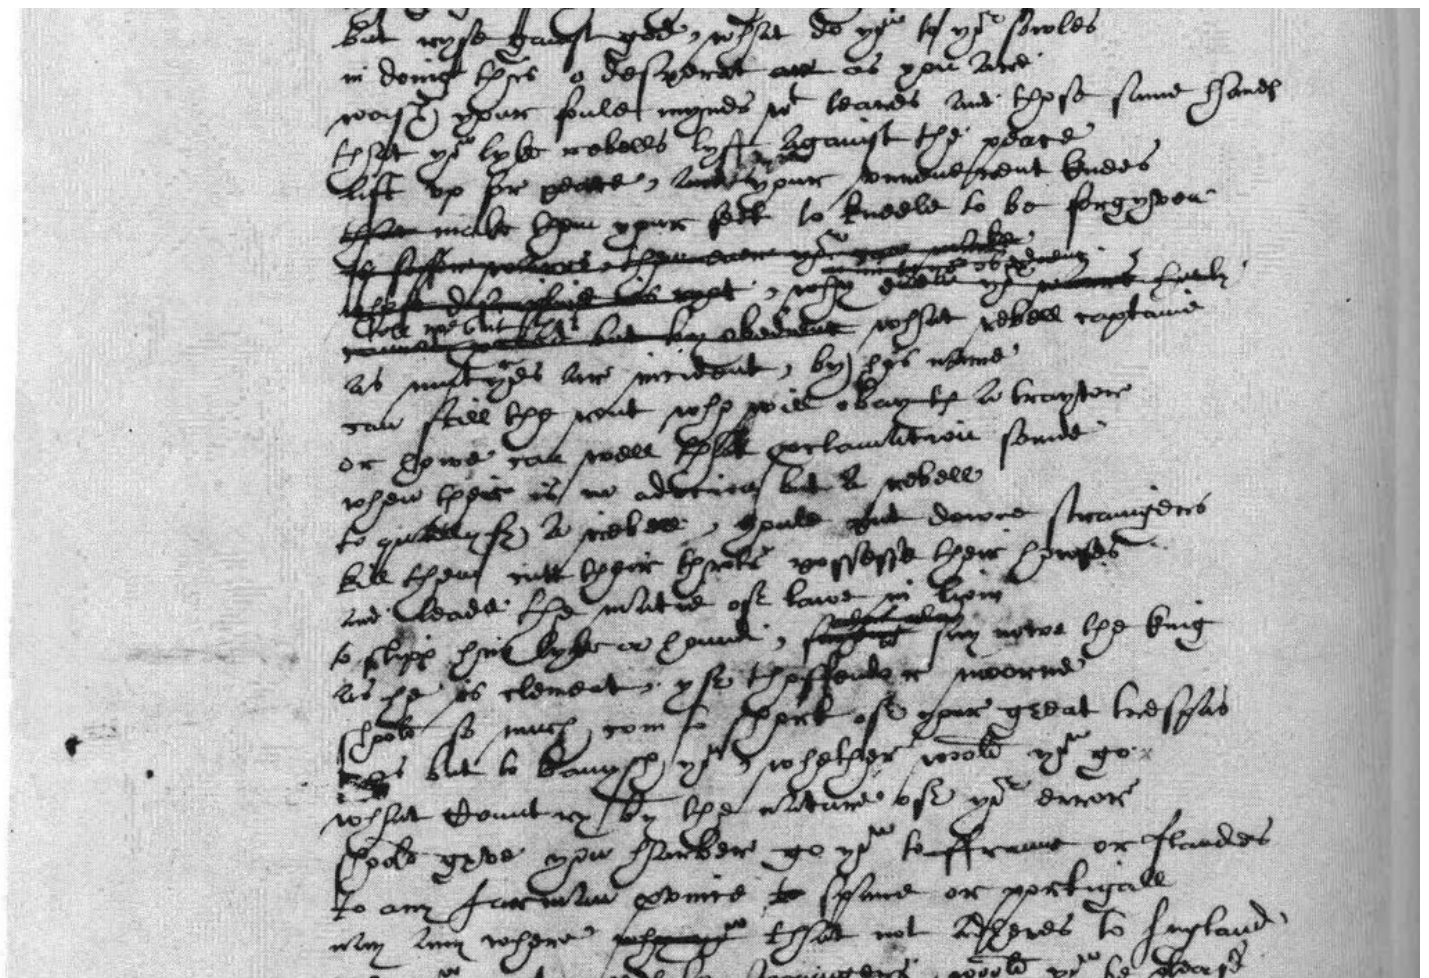 but ryse gainst god, what do yu to yor sowles
in doing this o desperat ar as you are.
wash your foule mynds wt teares and those same handes
that yu lyke rebells lyft against the peace
lift vp for peace, and your vnreuerent knees
that make them your feet to kneele to be forgyven
is safer warrs, then euer yu can make
in in to yor obedienc.
whose discipline is ryot, why euen yor warrs hurly
tell me but this
cannot proceed but by obedienc what rebell captaine
as mutynes ar incident, by his name
can still the rout who will obay th a traytor
or howe can well that proclamation sounde
when ther is no adicion but a rebell
to quallyfy a rebell, youle put downe straingers
kill them cutt their throts possesse their howses
and leade the matie of lawe in liom
alas alas
to slipp him lyke a hound, say nowe the king
as he is clement, yf thoffendor moorne
shoold so much com to short of your great trespas
as but to banysh yu, whether woold yu go.
what Country by the nature of yor error
shoold gyve you harber go yu to ffraunc or flanders
to any Iarman province to spane or portigall
nay any where that not adheres to Ingland
straingers, woold yu be pleasd